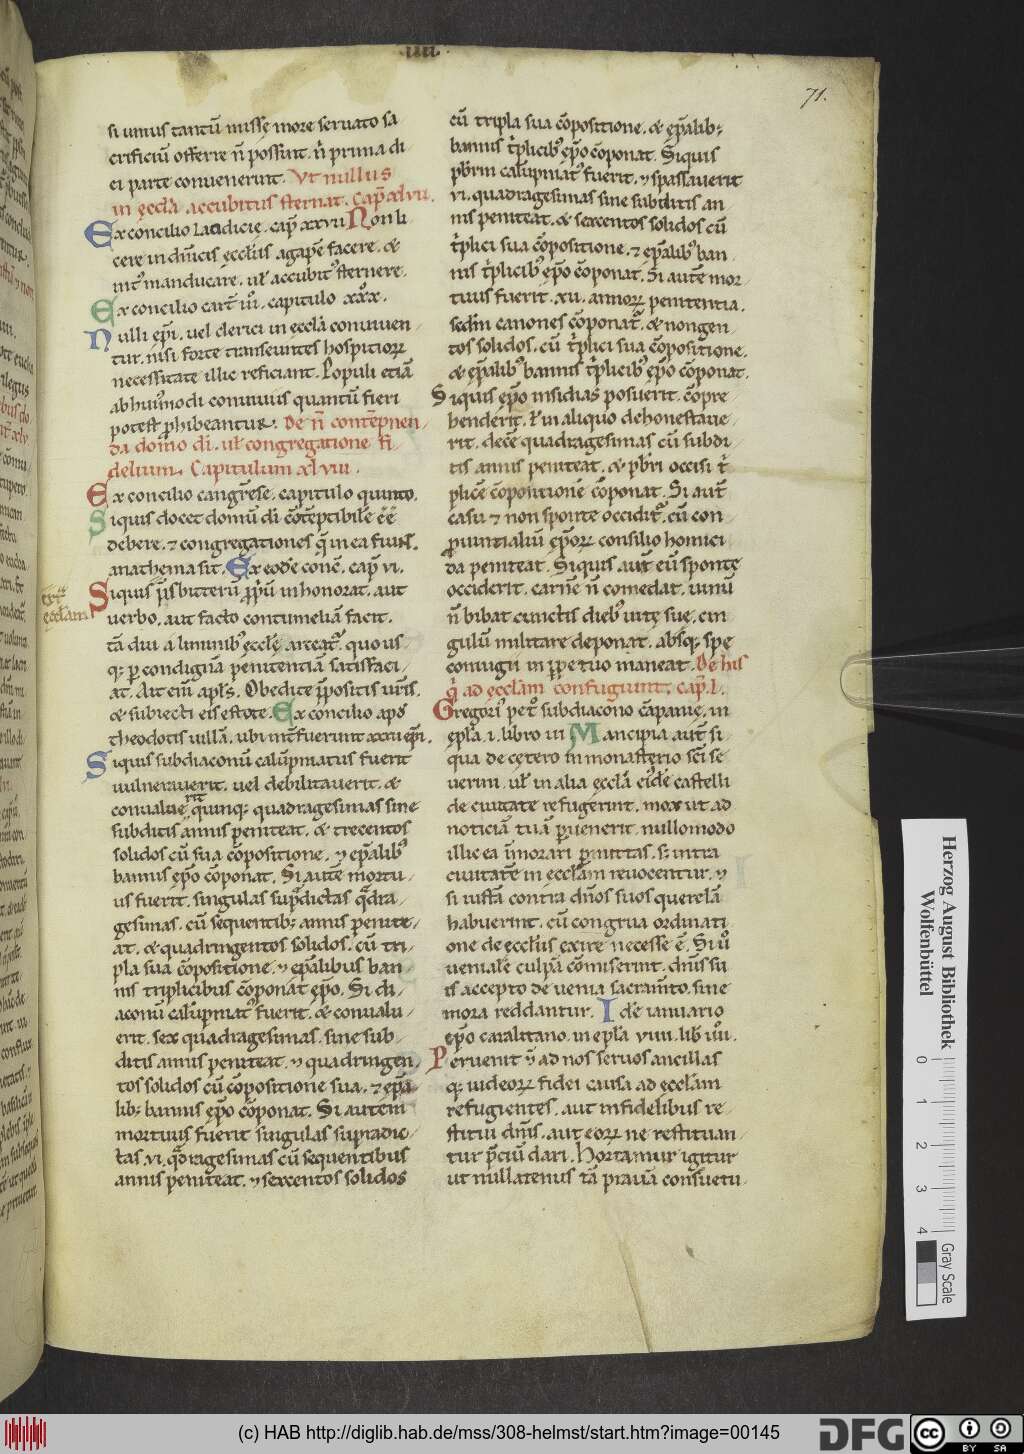 IIII.
71.
si unius tantū missę more seruato sa
crificiū offerre n̄ possunt. n̄ prima di
ei parte conuenerunt. Vt nullus
in ęccl̄a accubitus sternat. Cap̄ xlvii.
Ex concilio Laodicię. cap̄ xxvii Non li
cere in dn̄icis ęccl̄iis agapē facere. &
int' manducare. ul̄ accubit' sternere.
Ex concilio cart̄ iii. capitulo xxx.
Nulli ep̄i. uel clerici in ęccl̄a conuiuen
tur. nisi forte transeuntes hospitiorꝝ
necessitate illic reficiant. Populi etiā
ab hui'modi conuiuiis quantū fieri
potest ꝓhibeantur. De n̄ contēpnen
da domo dī. ul̄ congregatione fi
delium. Capitulum xlviii.
Ex concilio cangrēse. capitulo quinto.
Siquis docet domū dī cōtēptibilē ēē
debere. ⁊ congregationes q̄ in ea fiunt.
anathema sit. Ex eodē conc̄. cap̄ vi.
Siquis p̄sbitterū ꝓp̄ū inhonorat. aut
ęccl̄iam
uerbo. aut facto contumeliā facit.
tā diu a liminib' ęccl̄ę arceat'. quo us
q; ꝑ condignā penitentiā satisfaci
at. Ait eni apl̄s. Obedite p̄positis ur̄is.
& subiecti eis estote. Ex concilio apd̄
theodotis uillā. ubi int̄fuerunt xxxii ep̄i.
Siquis subdiaconū calūpniatus fuerit
uulnerauerit. uel debilitauerit. &
conualue rit quinq; quadragesimas sine
subditis annis peniteat. & trecentos
solidos cū sua cōpositione. ⁊ ep̄alib'
bannis ep̄o cōponat. Si autē mortu
us fuerit. singulas sup̄dictas q̄dra
gesimas. cū sequentib; annis penite
at. & quadringentos solidos. cū tri
pla sua cōpositione. ⁊ ep̄alibus ban
nis triplicibus cōponat ep̄o. Si di
aconū calūpniat' fuerit. & conualu
erit. sex quadragesimas. sine sub
ditis annis peniteat. ⁊ quadringen
tos solidos cū cōpositione sua. ⁊ ep̄a
lib; bannis ep̄o cōponat. Si autem
mortuus fuerit singulas supradic
tas. vi. q̄dragesimas cū sequentibus
annis peniteat. ⁊ sexcentos solidos
cū tripla sua cōpositione. & ep̄alib;
bannis t̄plicib' ep̄o cōponat. Siquis
pb̄rm calūpniat' fuerit. ⁊ spassauerit
vi. quadragesimas sine subditis an
nis peniteat. & sexcentos solidos cū
t̄plici sua cōpositione. ⁊ ep̄alib' ban
nis t̄plicib' ep̄o cōponat. Si autē mor
tuus fuerit. xii. annorꝝ penitentia.
scdm canones cōponat'. & nongen
tos solidos. cū t̄plici sua cōpositione.
& ep̄alib' bannis t̄plicib' ep̄o cōponat.
Siquis ep̄o insidias posuerit. cōpre
henderit. ł in aliquo dehonestaue
rit. decē quadragesimas cū subdi
tis annis peniteat. & pb̄ri occisi t̄
plicē cōpositionē cōponat. Si aut̄
casu ⁊ non sponte occidit'. cū con
ꝓuintialiū ep̄orꝝ consilio homici
da peniteat. Siquis. aut̄ eū sponte
occiderit. carnē n̄ comedat. uinū
n̄ bibat cunctis dieb' uitę suę. cin
gulū militare deponat. absq; spe
coniugii in ꝑpetuo maneat. De his
q̄ ad ęccl̄am confugiunt. cap̄. l.
Gregori' pet̄ subdiacono cāpanię. in
epl̄a. i. libro iii Mancipia aut̄ si
qua de cętero in monasterio sc̄i se
uerini. ul̄ in alia ęccl̄a ei'dē castelli
de ciuitate refugerint. mox ut ad
noticiā tuā ꝑuenerit. nullomodo
illic ea īmorari ꝑmittas. s; intra
ciuitatē in ęccl̄am reuocentur. ⁊
si iustā contra dn̄os suos querelā
habuerint. cū congrua ordinati
one de ęccl̄iis exire necesse ē. Si u'
uenialē culpā cōmiserint. dn̄is su
is accepto de uenia sacram̄to. sine
mora reddantur. Idē ianuario
ep̄o caralitano. in epl̄a viiii. lib iiii.
Peruenit ū ad nos seruos ancillas
q; iudeorꝝ fidei causa ad ęccl̄am
refugientes. aut infidelibus re
stitui dn̄is. aut eorꝝ ne restituan
tur p̄ciū dari. Hortamur igitur
ut nullatenus tā prauā consuetu
Herzog August Bibliothek
Wolfenbüttel
0 1 2 3 4
Gray Scale
(c) HAB http://diglib.hab.de/mss/308-helmst/start.htm?image=00145
DFG
cc BY SA